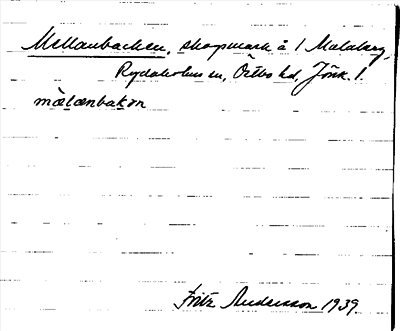 Mellanbacken, skogsmark å 1 Malaberg,
Rydaholms sn, Östbo hd, Jönk. l.
mälanbakən
Fritz Andersson 1939.